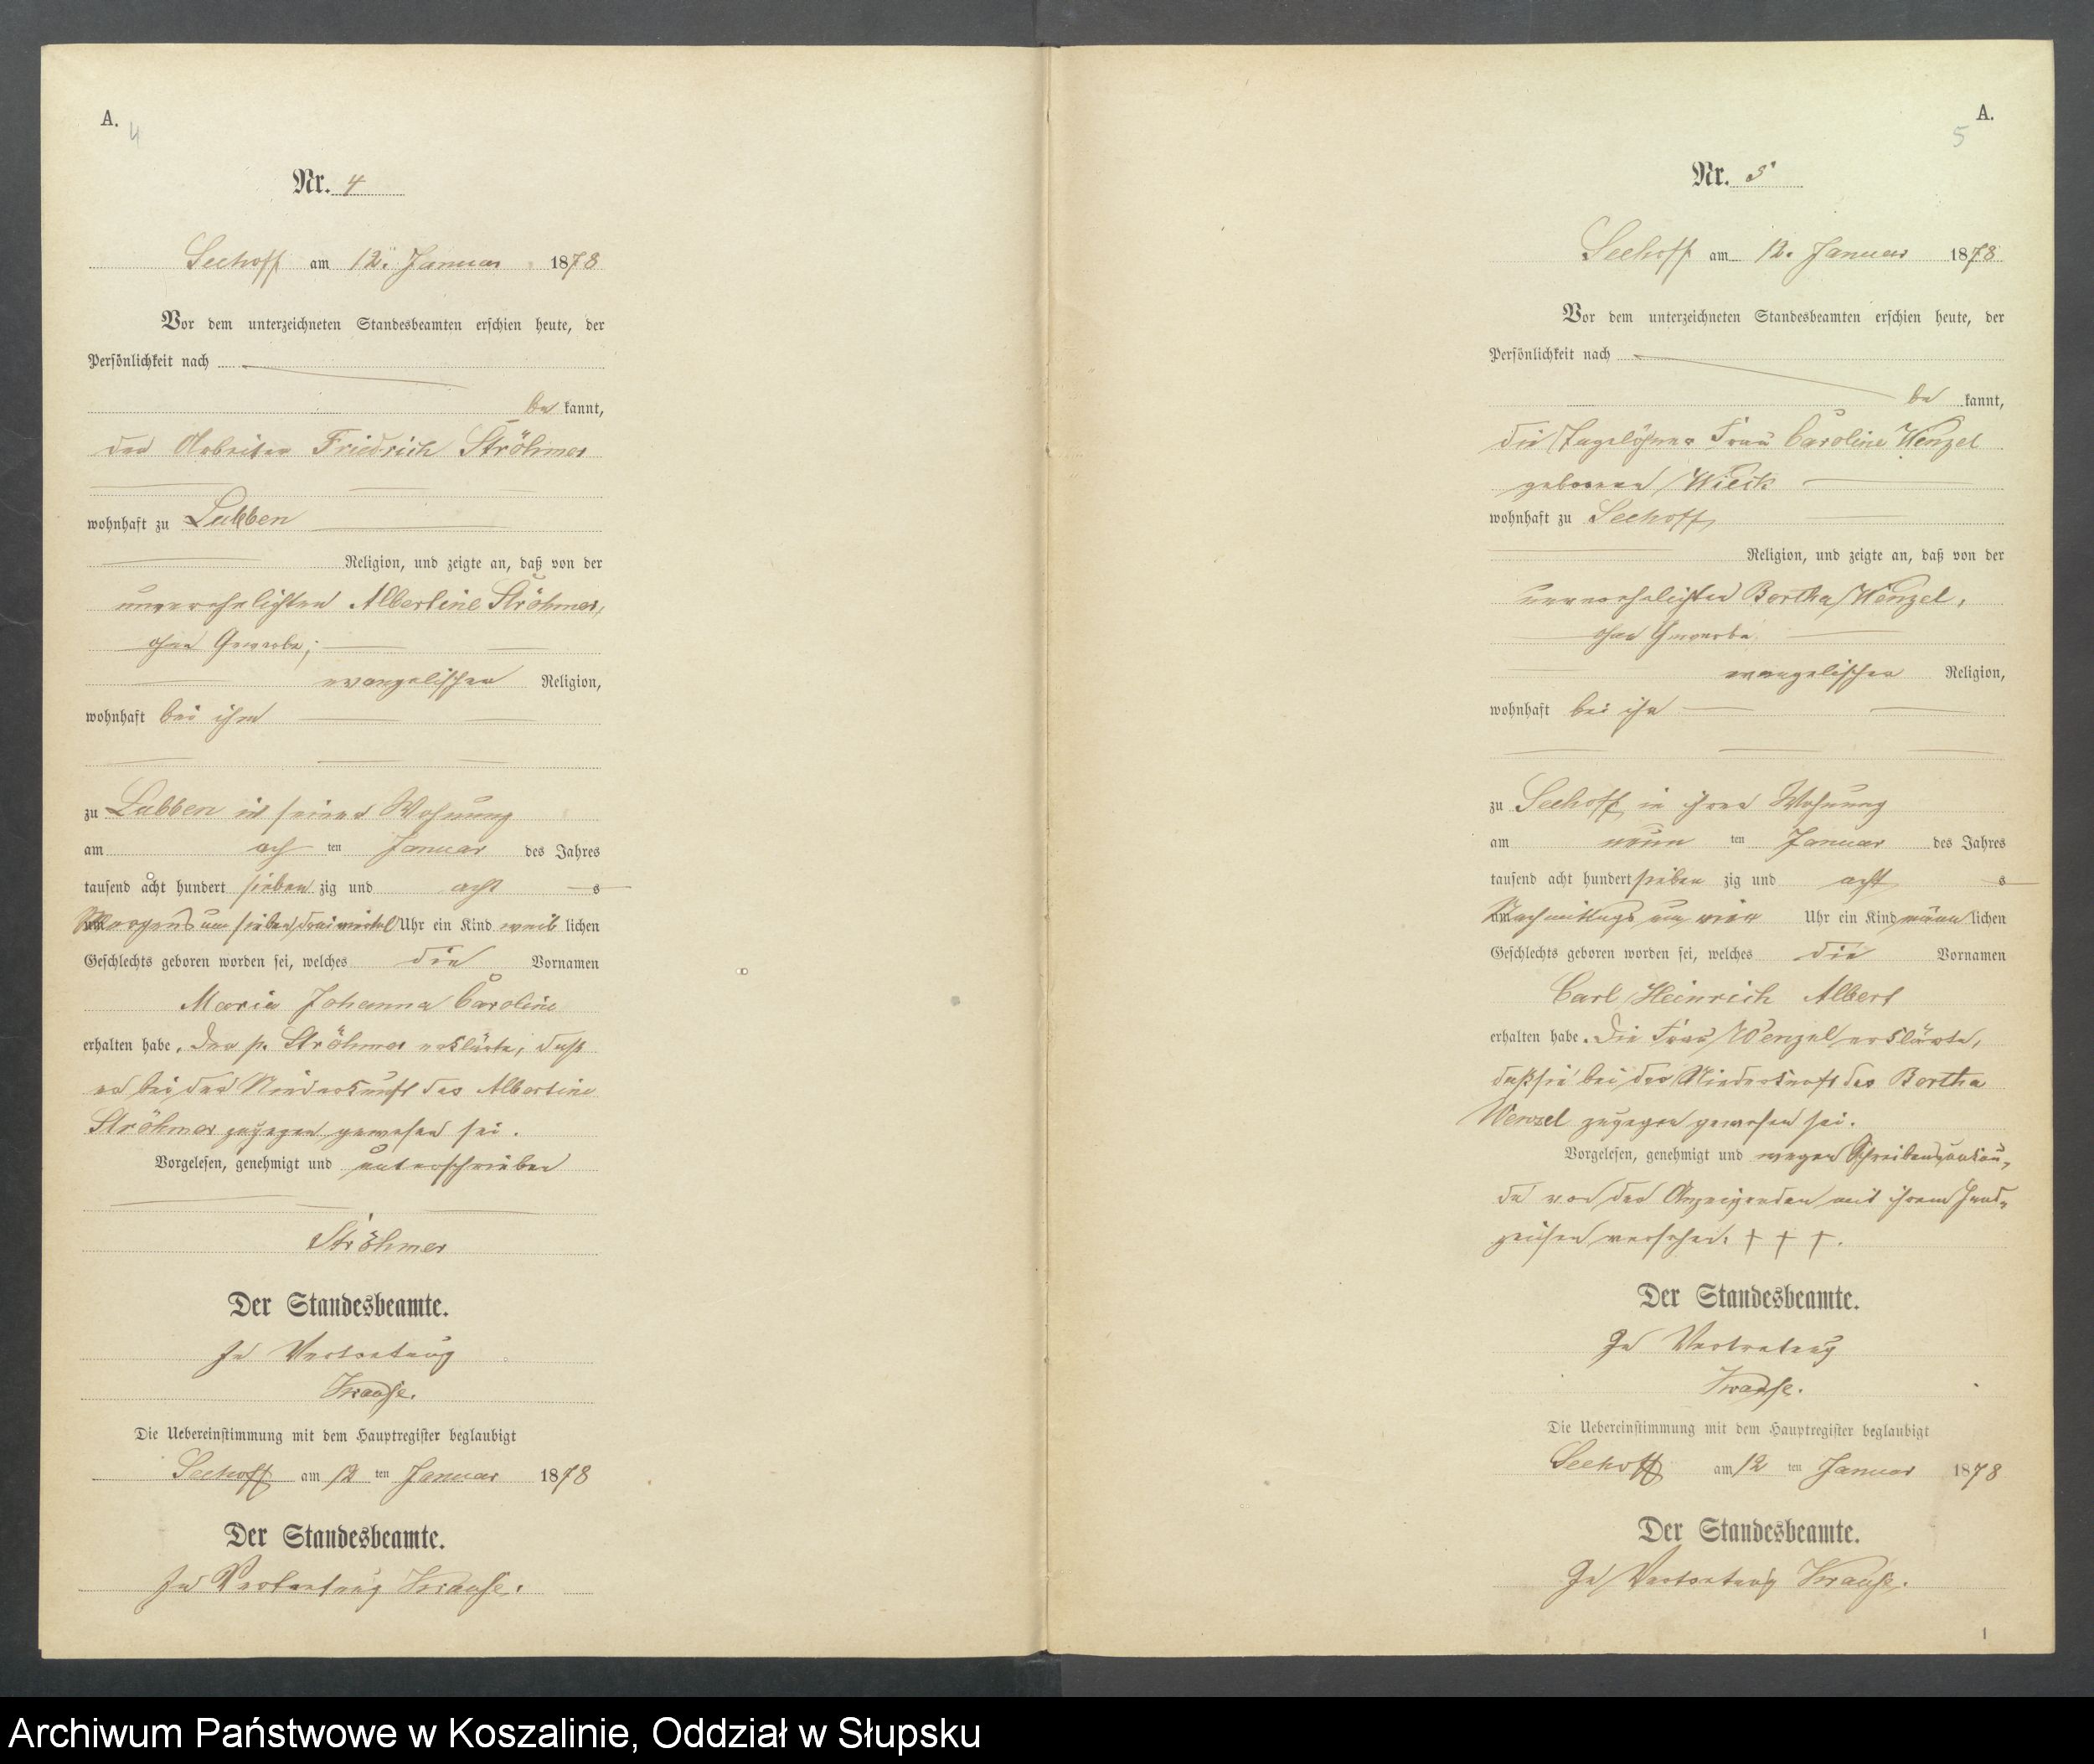 A.
4
Nr. 4
Seehoff am 12. Januar 1878
Vor dem unterzeichneten Standesbeamten erschien heute, der
Persönlichkeit nach
be kannt,
der Arbeiter Friedrich Ströhmer
wohnhaft zu Lubben
Religion, und zeigte an, daß von der
unverehelichten Albertine Ströhmer,
ohne Gewerbe;
evangelischer Religion,
wohnhaft bei ihm
zu Lubben in seiner Wohnung
am ach ten Januar des Jahres
tausend acht hundert sieben zig und acht
Morgens um sieben dreiviertel Uhr ein Kind weib lichen
Geschlechts geboren worden sei, welches die Vornamen
Maria Johanna Caroline
erhalten habe. Der p. Ströhmer erklärte, daß
er bei der Niederkunft der Albertine
Ströhmer zugegen gewesen sei.
Vorgelesen, genehmigt und unterschrieben
Ströhmer
Der Standesbeamte.
In Vertretung
Krause.
Die Uebereinstimmung mit dem Hauptregister beglaubigt
Seehoff am 12 ten Januar 1878
Der Standesbeamte.
In Vertretung Krause.
A.
5
Nr. 5
Seehoff am 12. Januar 1878
Vor dem unterzeichneten Standesbeamten erschien heute, der
Persönlichkeit nach
be kannt,
die Tagelöhner Frau Caroline Wenzel
geborene Wieck
wohnhaft zu Seehoff
Religion, und zeigte an, daß von der
unverehelichten Bertha Wenzel,
ohne Gewerbe
evangelischer Religion,
wohnhaft bei ihr
zu Seehoff in ihrer Wohnung
am neun ten Januar des Jahres
tausend acht hundert sieben zig und acht
Nachmittags um vier Uhr ein Kind männ lichen
Geschlechts geboren worden sei, welches die Vornamen
Carl Heinrich Albert
erhalten habe. Die Frau Wenzel erklärte,
daß sie bei der Niederkunft der Bertha
Wenzel zugegen gewesen sei.
Vorgelesen, genehmigt und wegen Schreibensunkun-
de von der Anzeigenden mit ihrem Hand-
zeichen versehen. † † †.
Der Standesbeamte.
In Vertretung
Krause.
Die Uebereinstimmung mit dem Hauptregister beglaubigt
Seehoff am 12 ten Januar 1878
Der Standesbeamte.
In Vertretung Krause.
1
Archiwum Państwowe w Koszalinie, Oddział w Słupsku